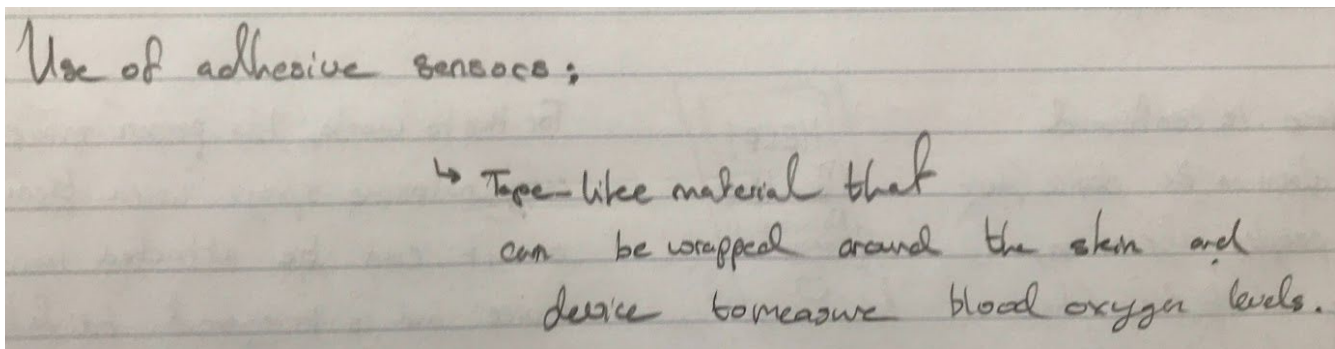 Use of adhesive sensors:
↳ Tape-like material that
can be wrapped around the skin and
device to measure blood oxygen levels.